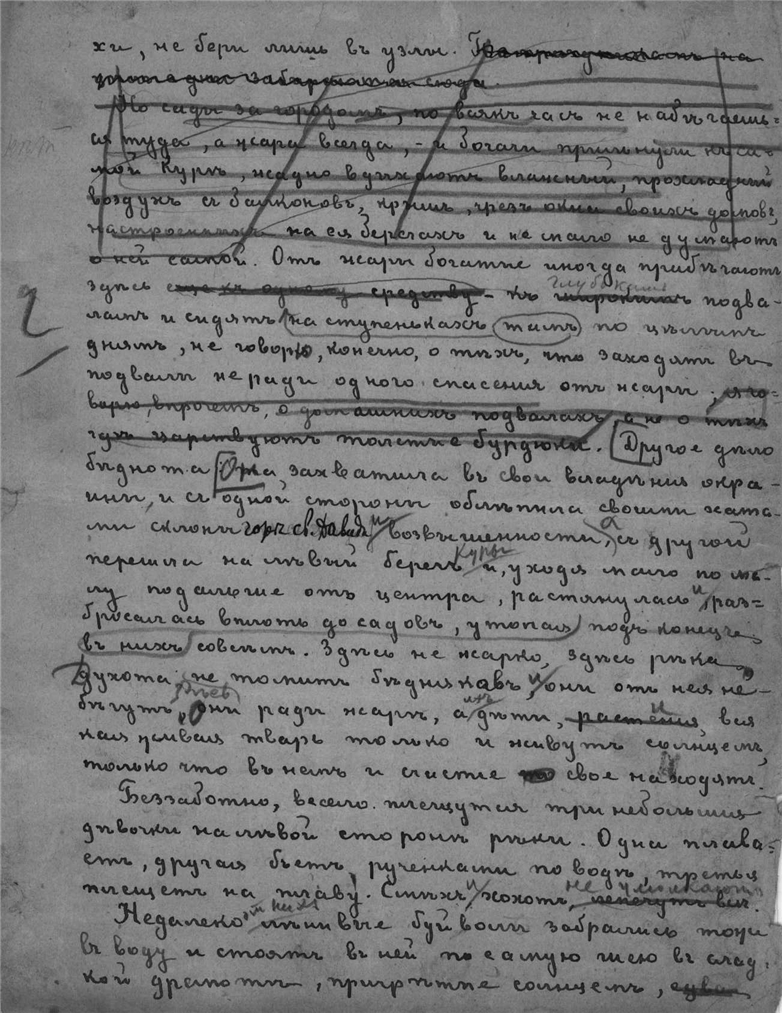 хи, не бери лишь въ узлы.
Но сады за городомъ, по всякъ часъ не набѣгаешь=
ся туда, а жара всегда, – и богачи прильнули къ са-
мой Курѣ, жадно вдыхаютъ влажный, прохладный
воздухъ съ балконовъ, крышъ, чрезъ окна своихъ домовъ,
настроенныхъ на ея берегахъ и не мало не думаютъ
о ней самой. Отъ жары богатые иногда прибѣгаютъ
здѣсь еще къ одному средству – къ глубокимъ широкимъ подва-
ламъ и сидятъ на ступенькахъ тамъ по цѣлымъ
днямъ, не говорю, конечно, о тѣхъ, что заходятъ въ
подвалы не ради одного спасенія отъ жары; я го-
ворю, впрочемъ, о домашнихъ подвалахъ, а не о тѣхъ
гдѣ царствуютъ толстые бурдюки. Другое дѣло
бѣднота. Она захватила въ свои владѣнія окра-
ины, и съ одной стороны облѣпила своими хата-
ми склоны горы св. Давида и возвышенности, а съ другой
перешла на лѣвый берегъ Куры и, уходя мало по ма-
лу подальше отъ центра, растянулась и раз=
бросалась вплоть до садовъ, утопая подъ конецъ
въ нихъ совсѣмъ. Здѣсь не жарко, здѣсь рѣка,
духота не томитъ бѣдняковъ, и они отъ нея не-
бѣгутъ. Они ради жары, а дѣти, растенія, вся
кая живая тварь только и живутъ солнцемъ,
только что въ немъ и счастье свое находятъ.
Беззаботно, весело плещутся три небольшія
дѣвочки на лѣвой сторонѣ рѣки. Одна плава=
етъ, другая бьетъ рученками по водѣ, третья
плещетъ на главу. Смѣхъ и хохотъ не умолкаютъ
Недалеко отъ нихъ лѣнивые буйволы забрались тоже
въ воду и стоятъ въ ней по самую шею въ слад-
кой дремотѣ, пригрѣтые солнцемъ,